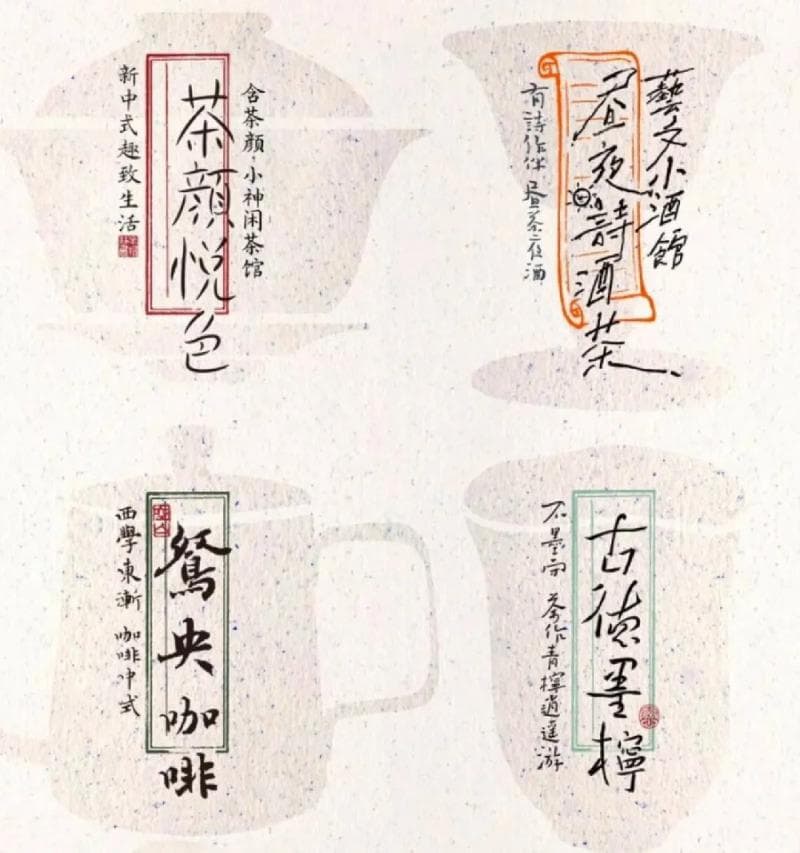 含茶颜,小神闲茶馆
茶颜悦色
新中式趣致生活
藝文小酒館
昼夜詩酒茶
有詩作伴 昼茶夜酒
鴛央咖啡
西學東漸 咖啡中式
古德墨檸
不墨守 茶作青檸逍遥游